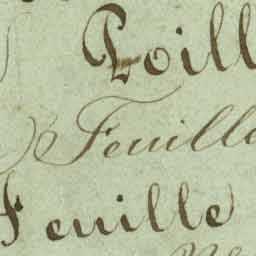 Poill
Feuille
Feuille